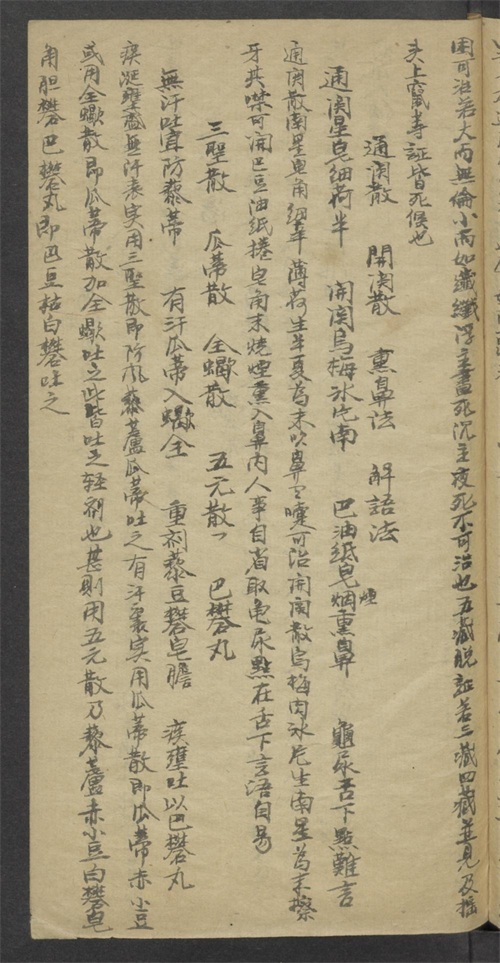 困可治若大而無倫小而如纖浮主晝死沉主夜死不可治也五臟脫証若三臟四臟並見及搖
头上竄等証皆死候也
通関散 開関散 熏鼻法 解語法
通関星皂細荷半 開関烏梅冰片南 巴油紙皂烟熏鼻 龜尿舌下點難言
通関散南星皂角細辛薄荷生半夏為末吹鼻有嚏可治開関散烏梅肉冰片生南星為末擦
牙其噤可開巴豆油紙捲皂角末燒煙熏入鼻內人事自省取龜尿點在舌下言語自易
三聖散 瓜蒂散 全蠍散 五元散 巴礬丸
無汗吐宜防藜蒂 有汗瓜蒂入蠍全 重剂藜豆礬皂膽 痰壅吐以巴礬丸
痰涎壅盛無汗表实用三聖散即防風藜蘆瓜蒂吐之有汗裏实用瓜蒂散即瓜蒂赤小豆
或用全蠍散即瓜蒂散加全蠍吐之此皆吐之轻剂也甚則用五元散乃藜蘆赤小豆白礬皂
角胆礬巴礬丸即巴豆枯白礬吐之